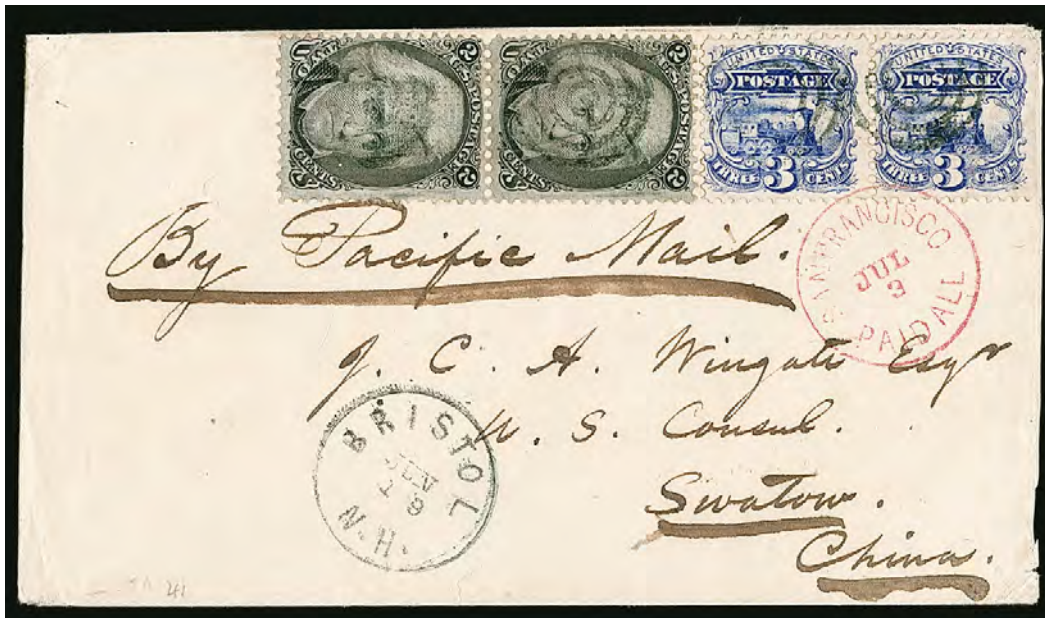 U.S. POSTAGE
TWO CENTS
2 2
U.S. POSTAGE
TWO CENTS
2 2
UNITED STATES
POSTAGE
THREE 3 CENTS
UNITED STATES
POSTAGE
THREE 3 CENTS
By Pacific Mail.
SAN FRANCISCO
JUL
3
PAID ALL
J. C. A. Wingate Esqr
U. S. Consul.
Swatow.
China.
BRISTOL
JUN
N.H.